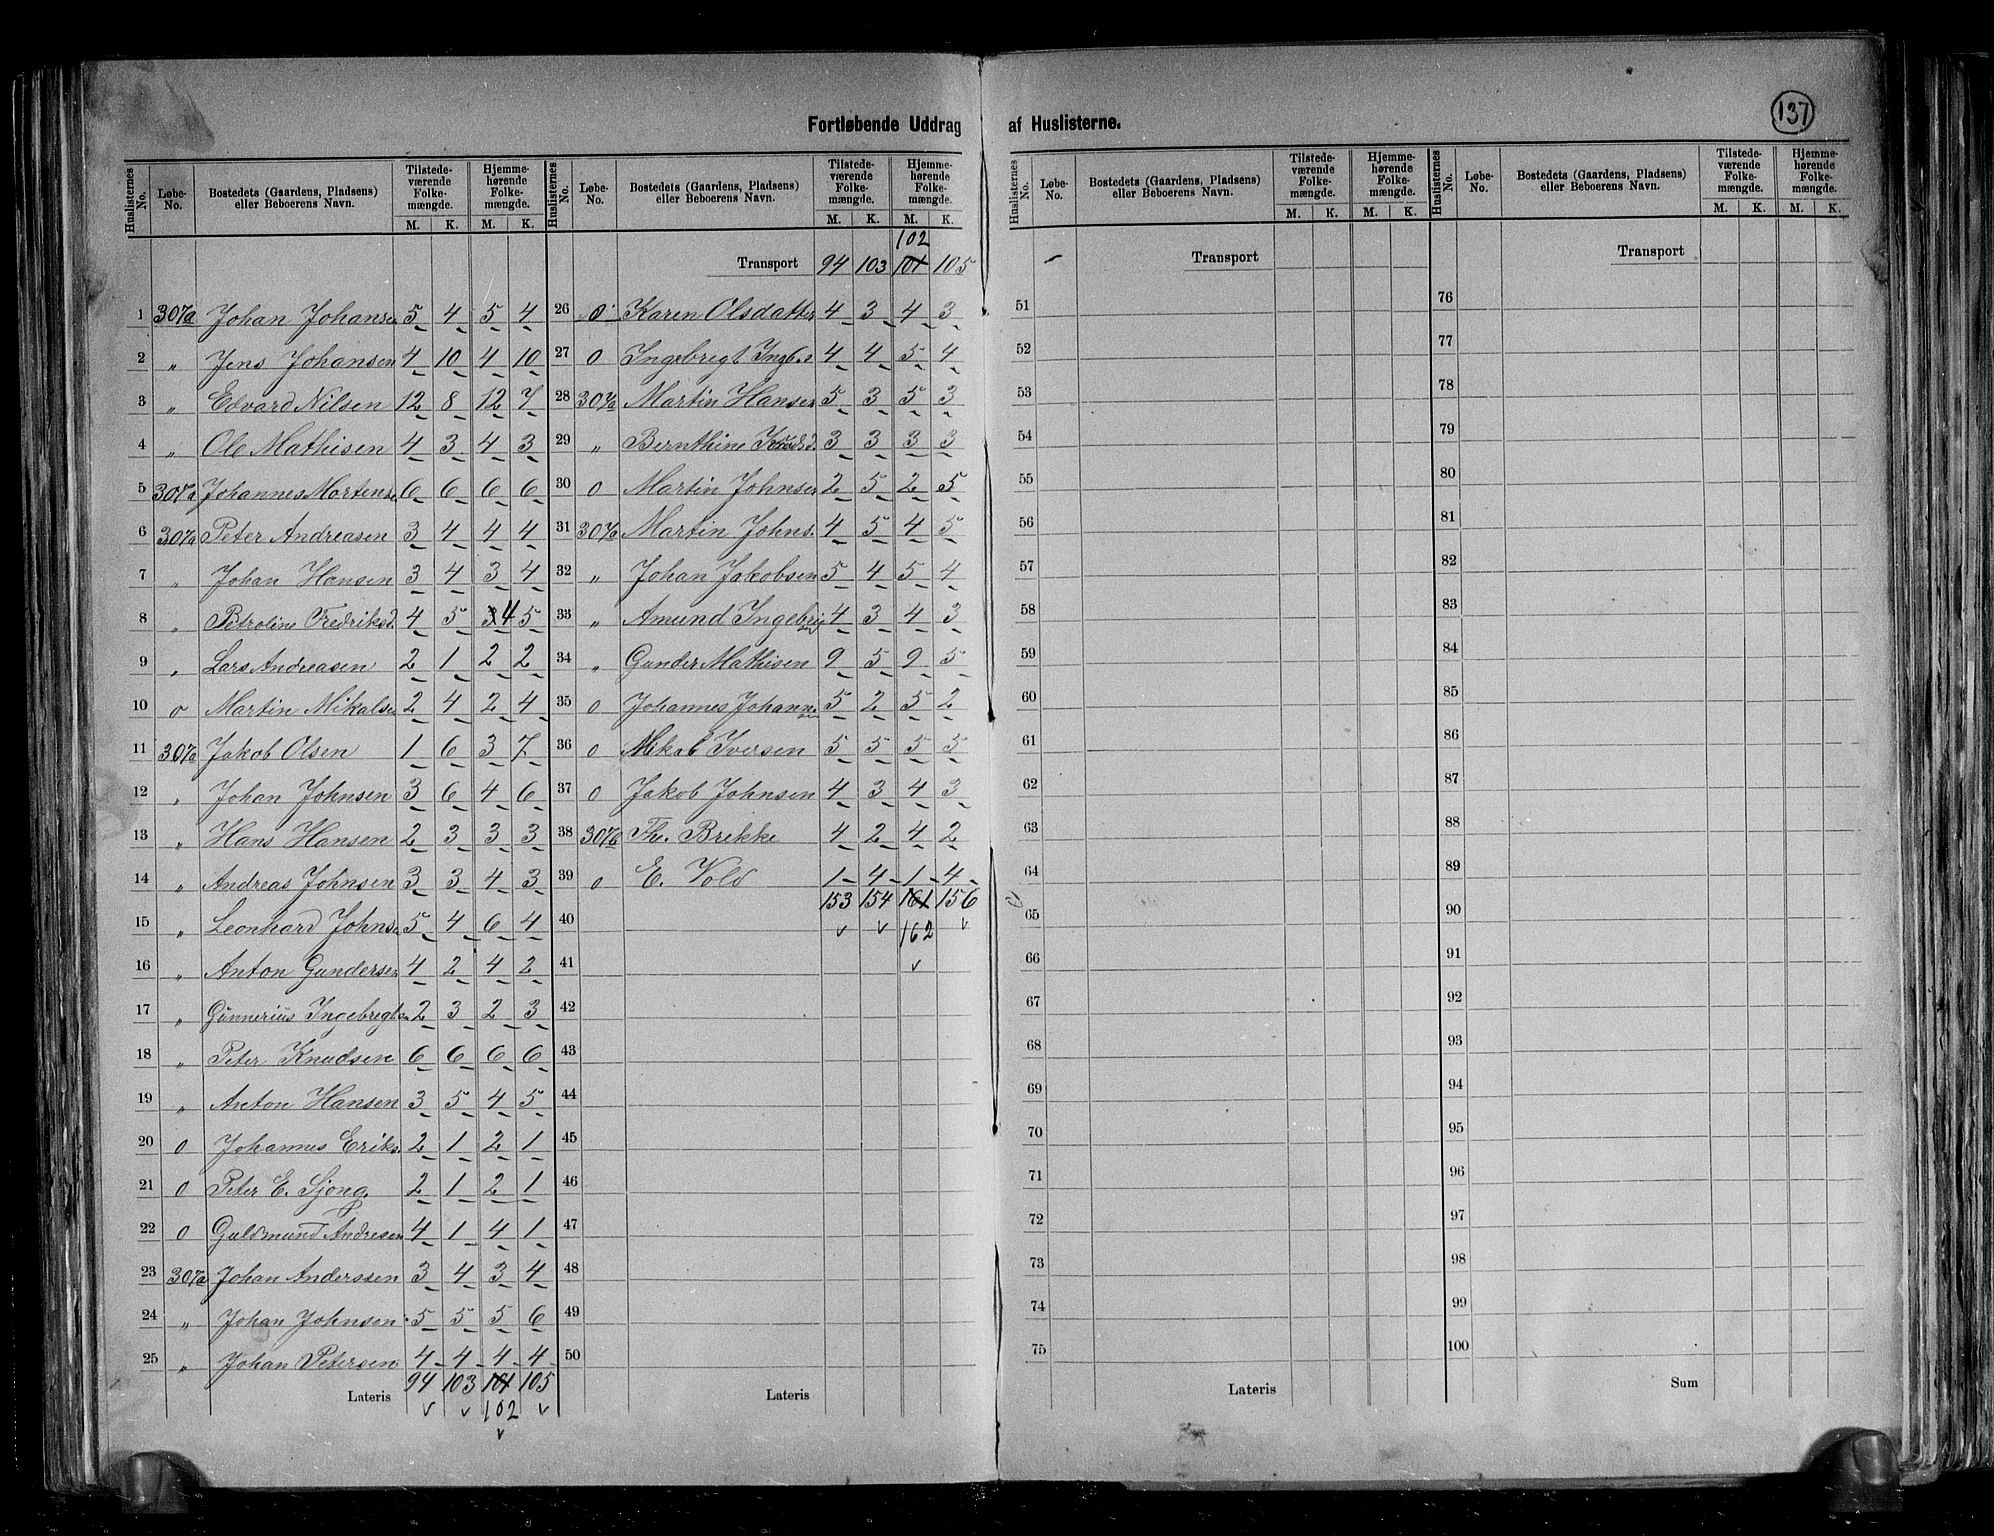 137
Fortløbende Uddrag af Huslisterne.
Huslisternes No. Løbe-No. Bostedets (Gaardens, Pladsens) eller Beboerens Navn. Tilstedeværende Folkemængde. M. K. Hjemmehørende Folkemængde. M. K.
1 307a Johan Johansen 5 4 5 4
2 „ Jens Johansen 4 10 4 10
3 „ Edvard Nilsen 12 8 12 7
4 „ Ole Mathisen 4 3 4 3
5 307a Johannes Mortense 6 6 6 6
6 307a Peter Andreasen 3 4 4 4
7 „ Johan Hansen 3 4 3 4
8 „ Petroline Fredriksd. 4 5 3 4 5
9 „ Lars Andreasen 2 1 2 2
10 o Martin Mikalse 2 4 2 4
11 307a Jakob Olsen 1 6 3 7
12 „ Johan Johnsen 3 6 4 6
13 „ Hans Hansen 2 3 3 3
14 „ Andreas Johnsen 3 3 4 3
15 „ Leonhard Johns 5 4 6 4
16 „ Anton Gundersen 4 2 4 2
17 „ Gunnerius Ingebregts 2 3 2 3
18 „ Peter Knudsen 6 6 6 6
19 „ Anton Hansen 3 5 4 5
20 0 Johannes Eriks. 2 1 2 1
21 0 Peter E. Sjong. 2 1 2 1
22 0 Guldmund Andresen 4 1 4 1
23 307a Johan Anderssen 3 4 3 4
24 „ Johan Johnsen 5 5 5 6
25 „ Johan Petersen 4 4 4 4
Lateris 94 103 101 105
102
Huslisternes No. Løbe-No. Bostedets (Gaardens, Pladsens) eller Beboerens Navn. Tilstedeværende Folkemængde. M. K. Hjemmehørende Folkemængde. M. K.
102
Transport 94 103 101 105
26 0 Karen Olsdatter 4 3 4 3
27 0 Ingebrigt Ingb.s 4 4 5 4
28 307a Martin Hansen 5 3 5 3
29 „ Bernthine 3 3 3 3
30 0 Martin Johnsen 2 5 2 5
31 Martin Johns. 4 5 4 5
32 „ Johan Jakobsen 5 4 5 4
33 „ Amund Ingebrig 4 3 4 3
34 „ Gunder Mathisen 9 5 9 5
35 0 Johannes Johann. 5 2 5 2
36 0 Mikal Iversen 5 5 5 5
37 0 Jakob Johnsen 4 3 4 3
38 307b Th. Brekke 4 2 4 2
39 0 E. Vold 1 4 1 4
153 154 161 156
40 162
41
42
43
44
45
46
47
48
49
50
Lateris
Huslisternes No. Løbe-No. Bostedets (Gaardens, Pladsens) eller Beboerens Navn. Tilstedeværende Folkemængde. M. K. Hjemmehørende Folkemængde. M. K.
Transport
51
52
53
54
55
56
57
58
59
60
61
62
63
64
65
66
67
68
69
70
71
72
73
74
75
Lateris
Huslisternes No. Løbe-No. Bostedets (Gaardens, Pladsens) eller Beboerens Navn. Tilstedeværende Folkemængde. M. K. Hjemmehørende Folkemængde. M. K.
Transport
76
77
78
79
80
81
82
83
84
85
86
87
88
89
90
91
92
93
94
95
96
97
98
99
100
Sum